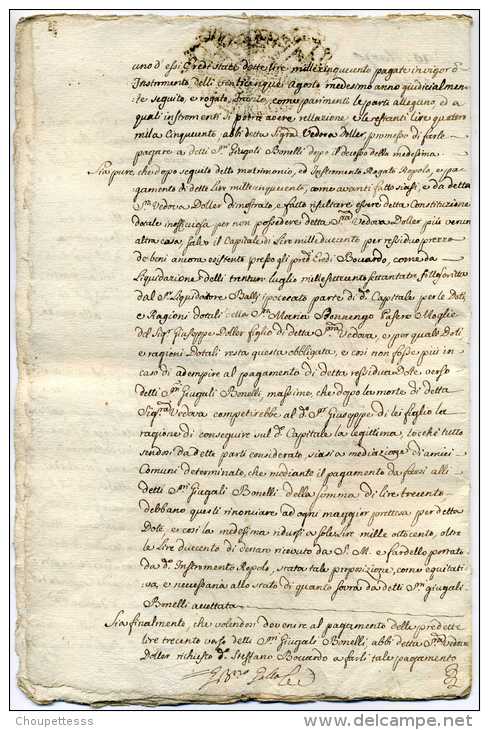 uno d'essi Eredi stati dette lire mille cinquecento pagate in vigor d'
Instromento delli venticinque Agosto medesimo anno giudicialmen-
te seguito, e rogato, come parimenti le parti allegano ed a
quali instromenti si potrà avere rellazione, e le restanti lire quattro
mila cinquecento abbi detta Sigra Vedova Doller, promesso di farle
pagare a detti SSri Giugali Bonelli dopo il decesso della medesima
Sia pure, che dopo seguito detto matrimonio, ed Instromento Rogato Repolo, e pa-
gamento di dette Lire mille cinquecento, come avanti fatto siasi, e da detta
Sra Vedova Doller dimostrato, e fatto risultare essere detta Constituzione
dotale inofficiosa per non possedere detta Sigra Vedova Doller più verun
altra cosa, salvo il Capitale di Lire mille ducento per residuo prezzo
de beni ancora esistente presso gli Eredi Bovardo, come da
Liquidazione delli trentun luglio mille settecento settantatre sottoscritta
dal Sr Liquidatore Bally ipotecato parte di do Capitale per le Doti,
e Ragioni dotali della Sra Maria Bonnengo Pastero Moglie
del Sigr Giuseppe Doller figlio di detta Sigra Vedova, e per quali Doti
e ragioni Dotali resta questa obbligata, e così non fosse più in
caso di adempire al pagamento di detta residua Dote verso
detti SSri Giugali Bonelli, massime, che dopo la morte di detta
Sigra Vedova competirebbe al do Sr Giuseppe di lei figlio la
ragione di conseguire sul do Capitale la legittima, locchè tutto
sendosi da dette parti considerato, siasi a mediazione di amici
Comuni determinato, che mediante il pagamento da farsi alli
detti SSri Giugali Bonelli della somma di lire trecento
debbano questi rinonciare ad ogni maggior prettesa per detta
Dote, e così la medesima ridursi a sole Lire mille ottocento, oltre
le Lire ducento di denaro ricevuto da S. M. e fardello portato
da do Instromento Repolo, stata tale proposizione, come equitati-
va, e necessaria allo stato di quanto sovra da detti SSri giugali
Bonelli accettata
Sia finalmente, che volendosi devenire al pagamento delle predette
lire trecento verso detti SSri Giugali Bonelli, abbi detta Sigra Vedova
Doller richiesto do Steffano Bovardo a farli tale pagamento
Copyright © Choupettesss
www.delcampe.net